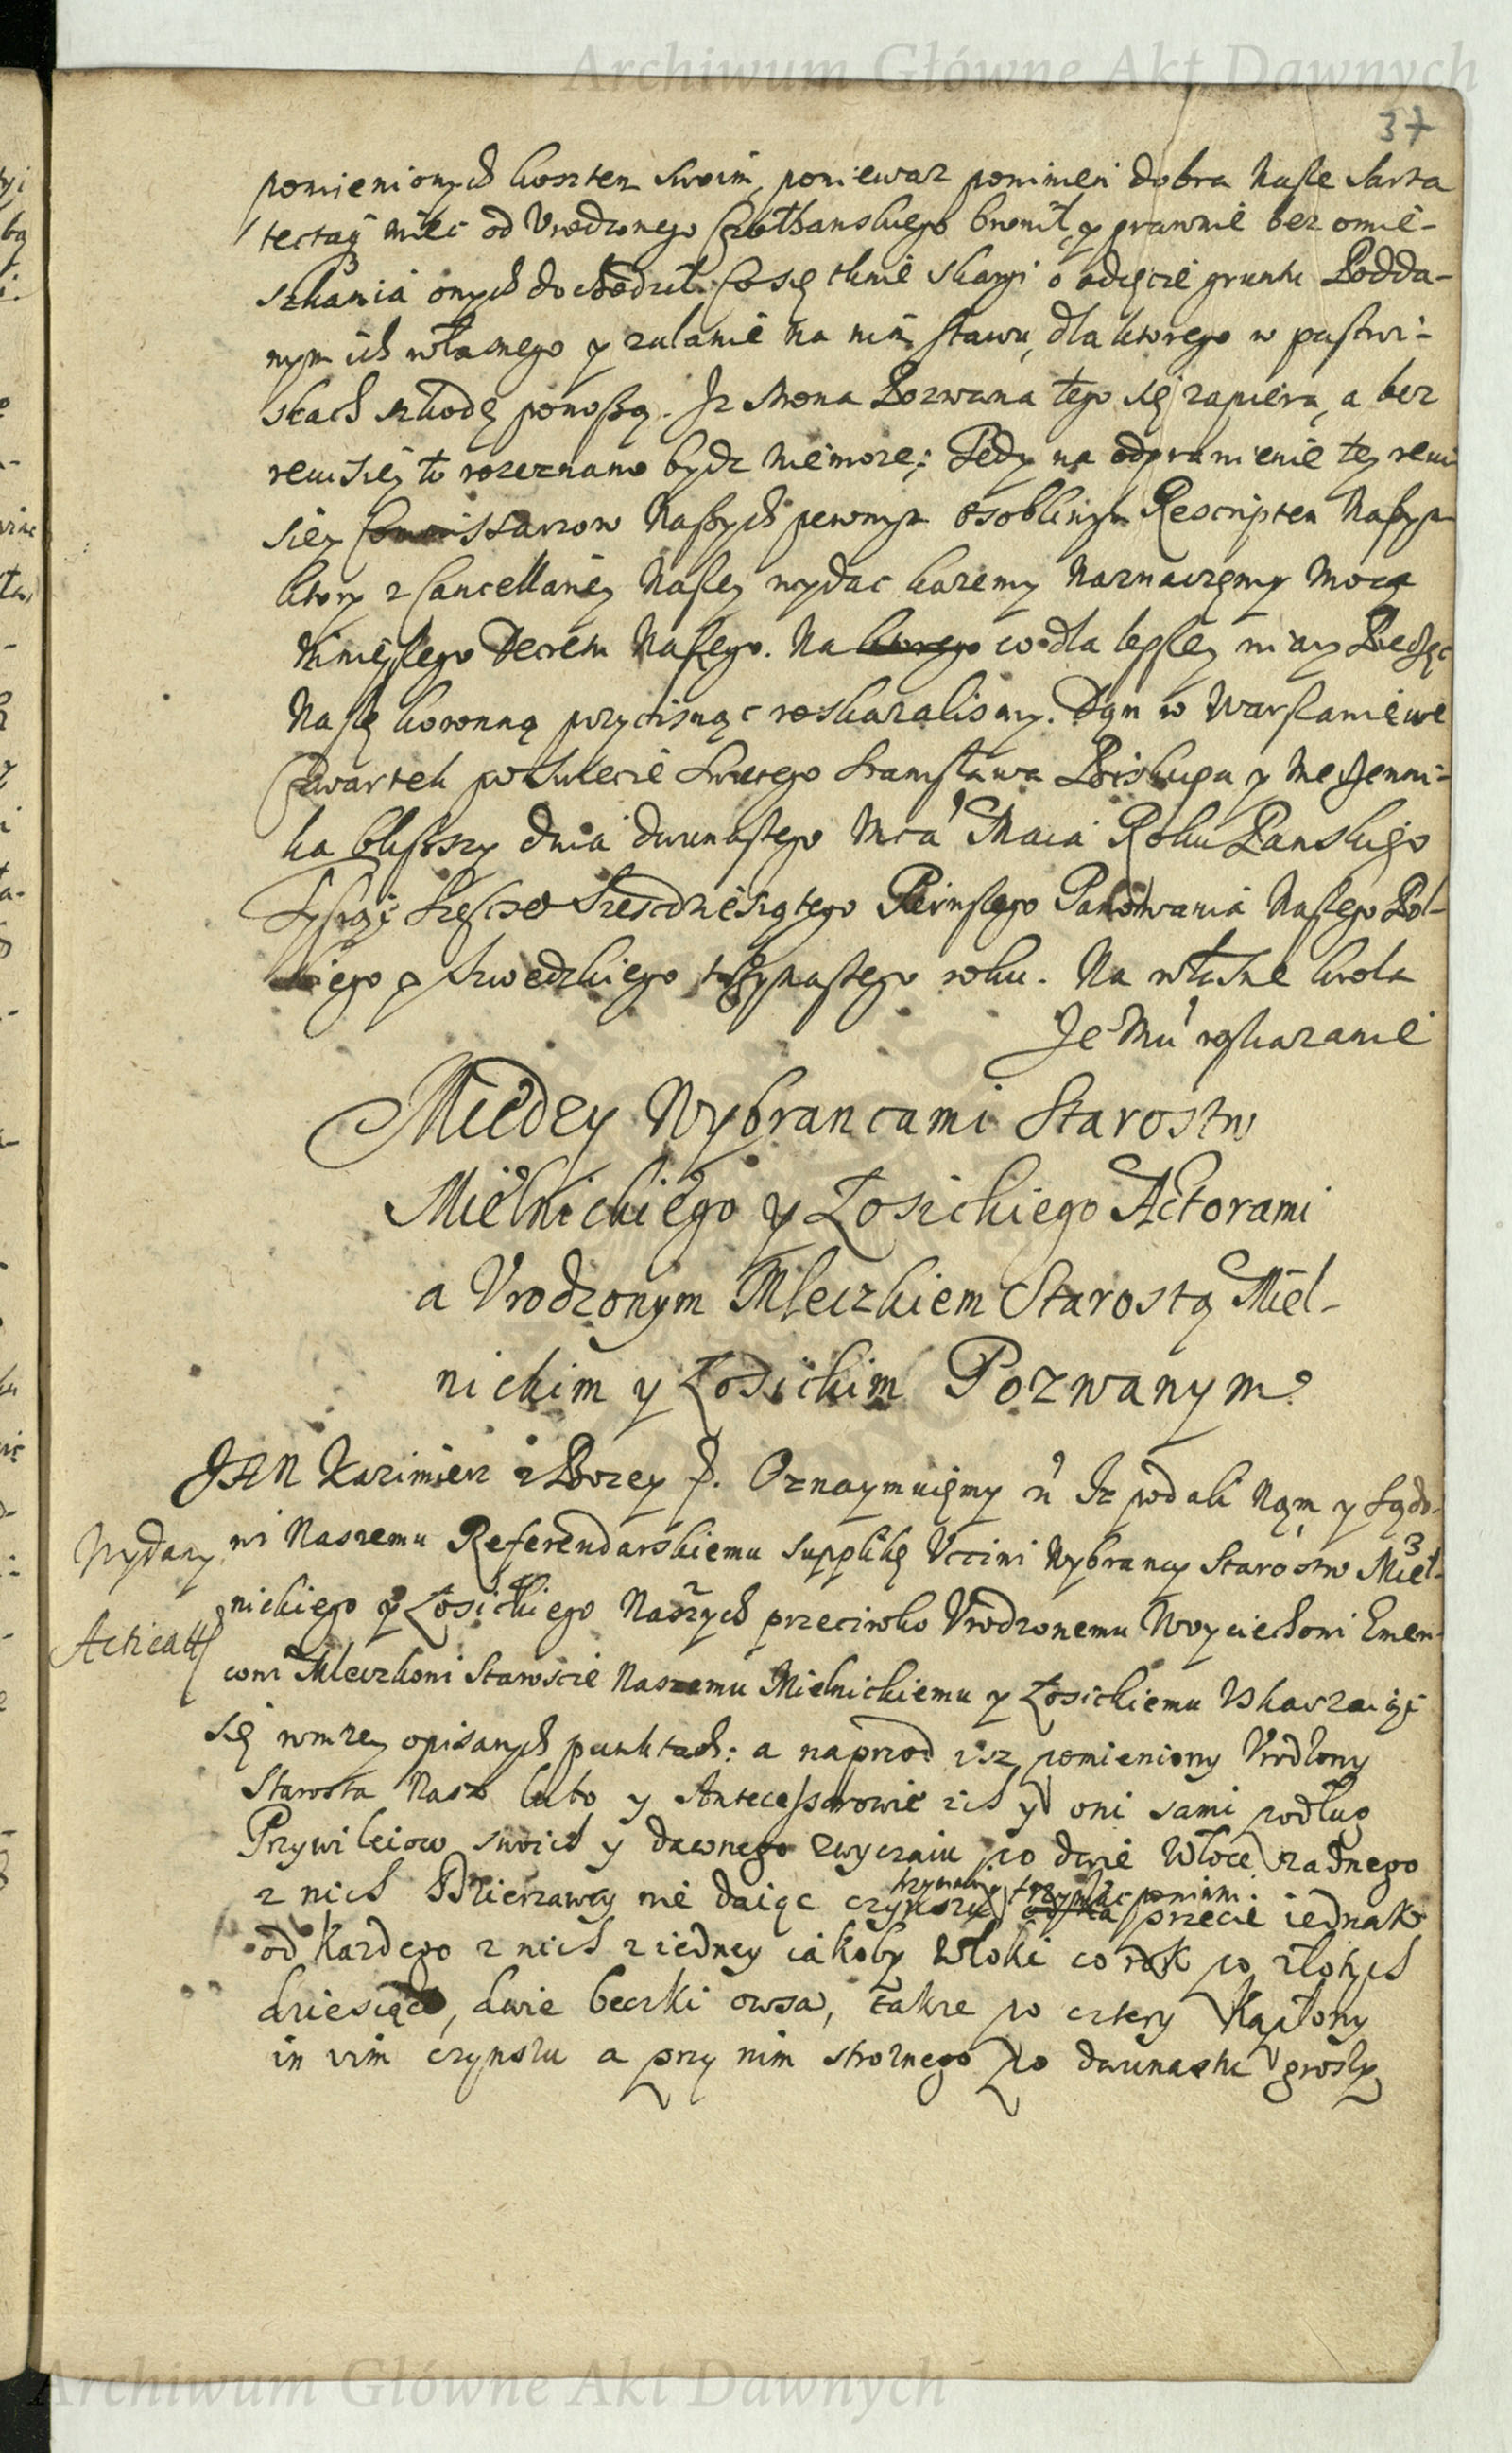 Archiwum Główne Akt Dawnych
37
pomienionych kosztem swoim, poniewaz powinien dobra Nasze sarta
tecta y miec od Vrodzonego bronił, y prawnie bez omie-
szkania onych dochodzit. Co się tknie skargi o odięcie gruntu Podda-
nym ich własnego y zalanie na nim stawu, dla ktorego w pastwi-
skach szkodę ponoszą. Iz strona Pozwana tego się zapiera, a bez
rewisiey to rozeznano bydz niemoze; Tedy na odprawienie tey rewi
siey Commissarzow Naszych pewnym osobliwym Rescriptem Naszym
ktory z Cancellariey Naszey wydac kazemy Naznaczemy mocą
Ninieyszego Decretu Naszego. Na ktorego co dla lepszey wiary Pieczęc
Naszę koronną przycisnąc roskazalismy. Dan w Warszawie we
Czwartek po Swięcie Swiętego Stanisława Biskupa y Męczenni-
ka bliszszy dnia dwunastego Mca Maia Roku Panskiego
Tysiąc Szescset Szescdziesiątego Pierwszego Panowania Naszego Pol-
skiego y Szwedzkiego trzynastego roku. Na własne krola
Je Mci roskazanie
Miedzy Wybrancami Starostw
Mielnickiego y Łosickiego Actorami
a Vrodzonym Mleczkiem Starostą Miel-
nickim y Łosickim Pozwanym.
JAN Kazimierz z Bozey ł. Oznaymuięmy n Iz podali Nąm y Sądo-
Wydany
wi Naszemu Referendarskiemu supplikę Vcciwi Wybrancy Starostw Miel-
nickiego y Łosickiego Naszych przeciwko Vrodzonemu Woyciechowi Emer-
Acticatt
cowi Mleczkowi Staroscie Naszemu Mielnickiemu y Łosickiemu Vskarzaiąc
się wnizey opisanych punktach: a naprzod isz pomieniony Vrodzony
Starosta Nasz lubo y Antecessorowie ich y oni sami podług
Przywileiow swoich y dawnego zwyczaiu po dwie Włoce zadnego
trzymali y trzymać powinni
z nich Dzierzawcy nie daiąc czynszu przecie iednak
od kazdego z nich z iedney iakoby Włoki co rok po złotych
dziesiąci, dwie beczki owsa, takze po cztery Kapłony
in vim czynszu a przy nim stroznego po dwunastu groszy
Archiwum Główne Akt Dawnych